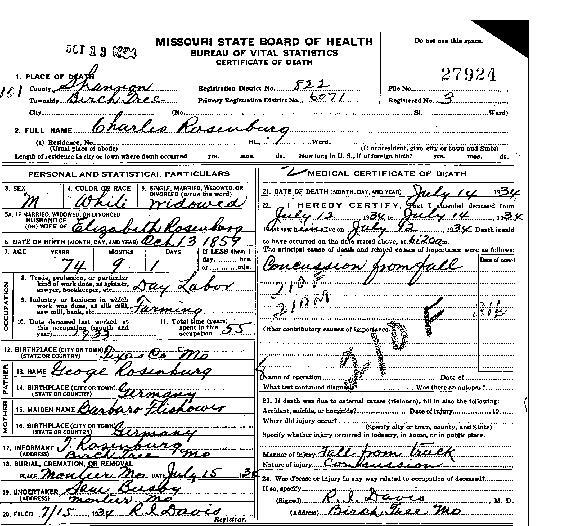 OCT 19
MISSOURI STATE BOARD OF HEALTH
BUREAU OF VITAL STATISTICS
CERTIFICATE OF DEATH
Do not use this space.
27924
1. PLACE OF DEATH
County Shannon Registration District No. 822 File No.
Township Birch Tree Primary Registration District No. 6071 Registered No. 3
City (No. St. Ward)
2. FULL NAME Charles Rosenburg
(a) Residence, No. St., Ward.
(Usual place of abode) (If nonresident, give city or town and State)
Length of residence in city or town where death occurred yrs. mos. ds. How long in U. S., if of foreign birth? yrs. mos. ds.
PERSONAL AND STATISTICAL PARTICULARS
3. SEX 4. COLOR OR RACE 5. SINGLE, MARRIED, WIDOWED, OR DIVORCED (write the word)
M White Widowed
5A. IF MARRIED, WIDOWED, OR DIVORCED
HUSBAND OF
(OR) WIFE OF Elizabeth Rosenburg
6. DATE OF BIRTH (MONTH, DAY, AND YEAR) Oct 13 1859
7. AGE YEARS MONTHS DAYS If LESS than 1 day, hrs. or min.
74 9 1
OCCUPATION
8. Trade, profession, or particular kind of work done, as spinner, sawyer, bookkeeper, etc. Day Labor
9. Industry or business in which work was done, as silk mill, saw mill, bank, etc. Farming
10. Date deceased last worked at this occupation (month and year) 1933 11. Total time (years) spent in this occupation 55
12. BIRTHPLACE (CITY OR TOWN) Texas Co Mo
(STATE OR COUNTRY)
FATHER
13. NAME Geoge Rosenburg
14. BIRTHPLACE (CITY OR TOWN) Germany
(STATE OR COUNTRY)
MOTHER
15. MAIDEN NAME Barbara
16. BIRTHPLACE (CITY OR TOWN) Germany
(STATE OR COUNTRY)
17. INFORMANT T. Rosenburg
(ADDRESS) Birch Tree Mo
18. BURIAL, CREMATION, OR REMOVAL
PLACE Montier Mo. DATE July 15 34
19. UNDERTAKER
(ADDRESS) Montier Mo
20. FILED 7/15 1934 R. I. Davis
Registrar.
MEDICAL CERTIFICATE OF DEATH
21. DATE OF DEATH (MONTH, DAY, AND YEAR) July 14 1934
22. I HEREBY CERTIFY, That I attended deceased from
July 12 1934 July 14 1934
July 12 1934 Death is said
to have occurred on the date stated above, at
The principal cause of death and related causes of importance were as follows:
Date of onset
Concussion from fall
210M
Other contributory causes of importance:
210F
Name of operation Date of
What test confirmed diagnosis? Was there an autopsy?
23. If death was due to external causes (violence), fill in also the following:
Accident, suicide, or homicide? Date of injury 19
Where did injury occur?
(Specify city or town, county, and State)
Specify whether injury occurred in industry, in home, or in public place.
Manner of injury Fall from truck
Nature of injury Concussion
24. Was disease or injury in any way related to occupation of deceased?
If so, specify
(Signed) R. I. Davis M. D.
(Address) Birch Tree Mo